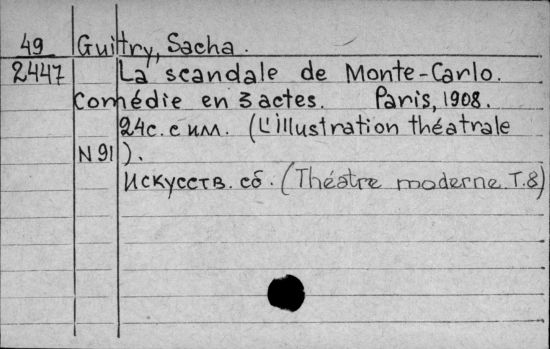 49 Guitry, Sacha.
2447 La scandale de Monte-Carlo.
Comédie en 3 actes. Paris, 1908.
24с. с илл. (L'illustration théatrale
N 91).
Искусств. сб. (Théatre moderne. T.8)